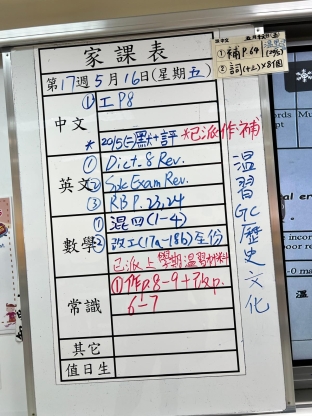 家課表
第17週5月16日(星期五)
①補P.64
②詞(+2)×8個
中文
① 工P8
* 20/5(二)默+評 *已派作補
英文
① Dict. 8 Rev.
② Spk Exam Rev.
③ RBP.23,24
數學
① 混四(1-4)
② 改工(17a-18b)全份
已派上學期溫習材料
常識
①作p.8-9+
6-7
其它
值日生
溫習GC歷史文化